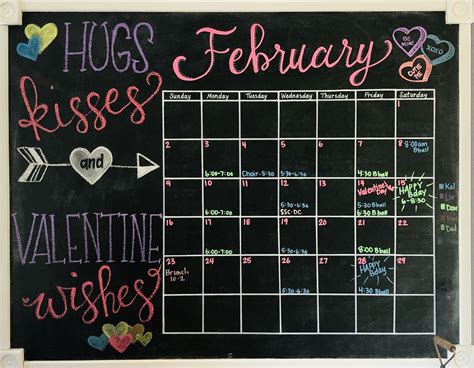 HUGS
kisses
and
VALENTINE
wishes
February
BE MINE
XOXO
CUTE
Sunday Monday Tuesday Wednesday Thursday Friday Saturday
1
2 3 4 5 6 7 8
8:00am
Bball
6:00-7:00 Choir-5:30 5:30-6:30 4:30 Bball
9 10 11 12 13 14 15
Valentine's Day
HAPPY
Bday
6-8:30
6:00-7:00 5:30-6:30
SSC-DC
5:30 Bball
16 17 18 19 20 21 22
6:00-7:00 5:30-6:30 5:30 Bball
6:30 Bball
23 24 25 26 27 28 29
Brunch
10-2
HAPPY
Bday
5:30-6:30 4:30 Bball
Kel
Liv
Dad